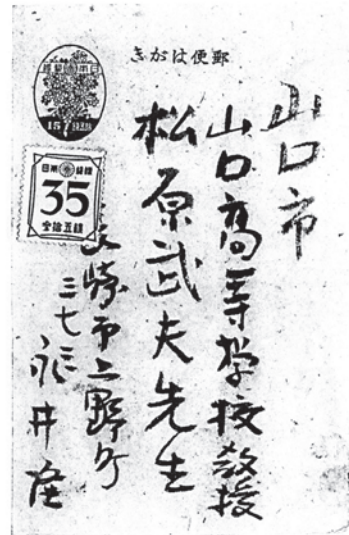 郵便はがき
15
35
山口市
山口高等学校教授
松原武夫先生
崎市上野町
三七三
永井隆